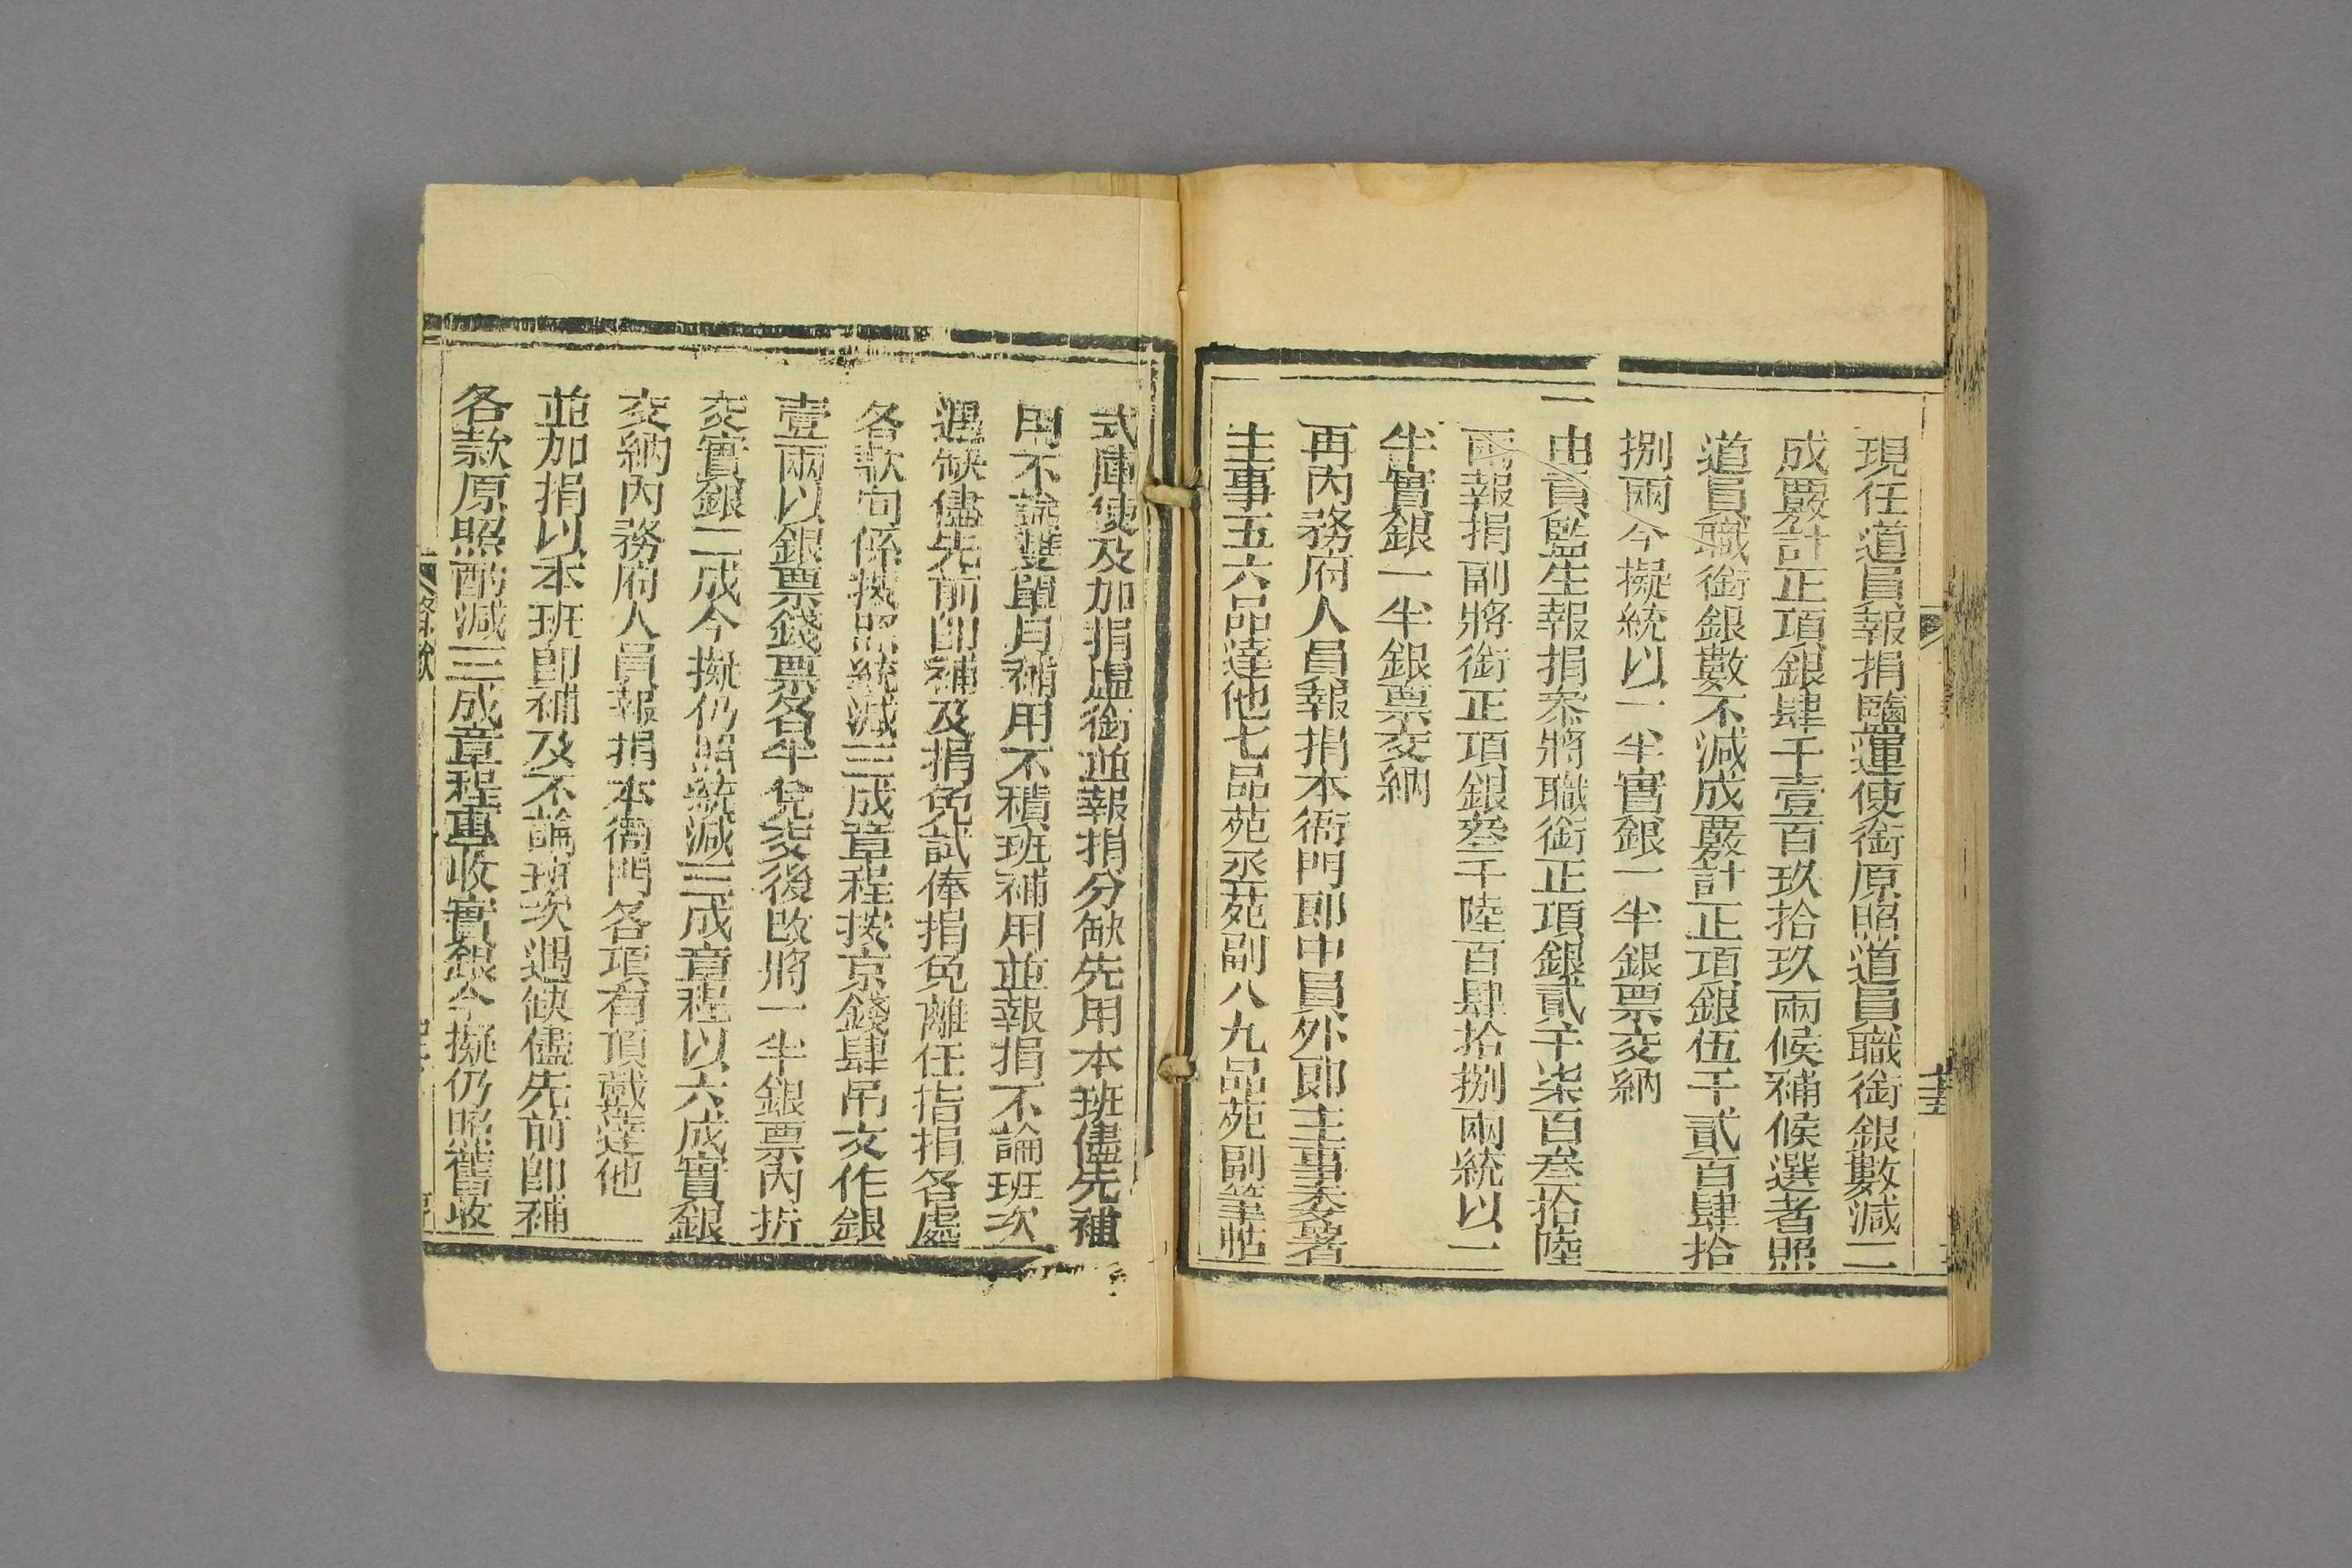 現任道員報捐鹽運使銜原照道員職銜銀數減二
成覈計正項銀肆千壹百玖拾玖兩候補候選者照
道員職銜銀數不減成覈計正項銀伍千貳百肆拾
捌兩今擬統以一半實銀一半銀票交納
一由貢監生報捐叅將職銜正項銀貳千柒百叁拾陸
兩報捐副將銜正項銀叁千陸百肆拾捌兩統以一
半實銀一半銀票交納
再內務府人員報捐本衙門郎中員外郎主事委署
主事五六品達他七品苑丞苑副八九品苑副筆帖
式庫使及加捐虛銜並報捐分缺先用本班儘先補
用不論雙單月補用不積班補用並報捐不論班次
遇缺儘先前卽補及捐免試俸捐免離任指捐各處
各款向係按照統減三成章程按京錢肆吊文作銀
壹兩以銀票錢票各半兌交後改將一半銀票內折
交實銀二成今擬仍照統減三成章程以六成實銀
交納內務府人員報捐本衙門各項有頂戴達他
並加捐以本班卽補及不論班次遇缺儘先前卽補
各款原照酌減三成章程專收實銀今擬仍照舊收